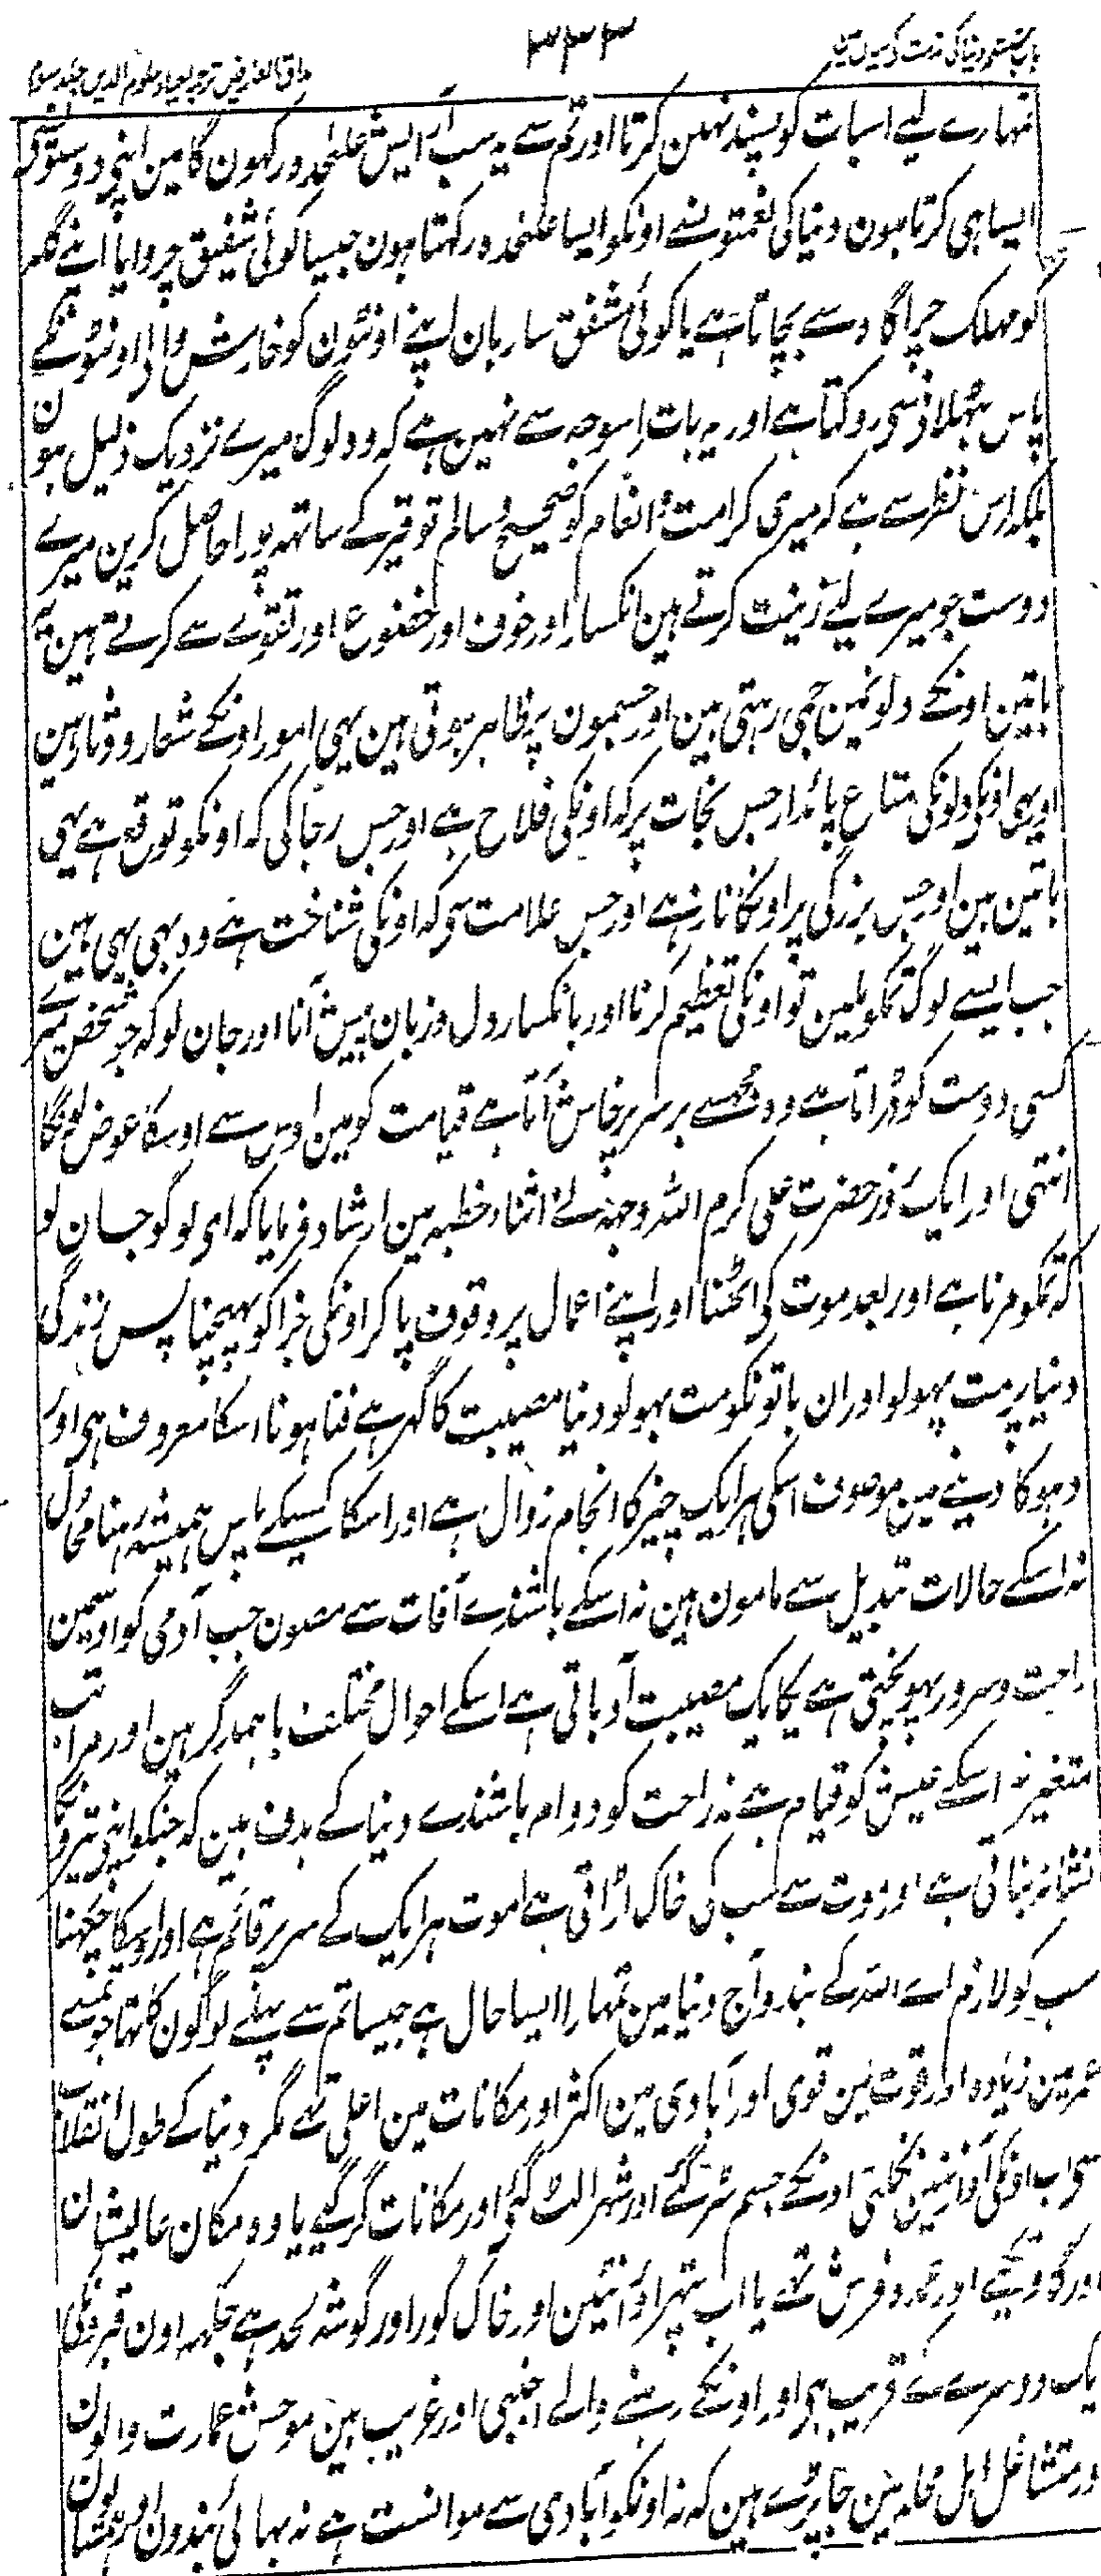 باب ششم دنیا کی مذمت کے بیان میں
۳۳۳
مذاق العارفین ترجمہ احیاء علوم الدین جلد سوم
تمہارے لیے اسبات کو پسند نہین کرتا اور تم سے یہ سب آسایش علیحدہ رکھون گا مین اپنے دوستونسے
ایسا ہی کرتا ہون دنیا کی نعمتونسے اونکو ایسا علیحدہ رکھتا ہون جیسا کوئی شفیق چرواہا اپنے گلہ
کو مہلک چراگاہ سے بچاتا ہے یا کوئی مشفق ساربان اپنے اونٹون کو خارش والی اونٹونکے
پاس بٹھلانے سے روکتا ہے اور یہ بات اسوجہ سے نہین ہے کہ وہ لوگ میرے نزدیک ذلیل ہون
بلکہ اس نظر سے ہے کہ میری کرامت و انعام کو صحیح و سالم توقیر کے ساتھ پورا حاصل کرین میرے
دوست جو میرے لیے زینت کرتے ہین انکسار اور خوف اور خضوع اور تقوے سے کرتے ہین یہ
باتین اونکے دلونمین جمی رہتی ہین اور جسمون پر ظاہر ہوتی ہین یہی امور اونکے شعار و دثار ہین
اور یہی اونکی دلونکی متاع پائدار جس نجات پر کہ اونکی فلاح ہے اور جس رجا کی کہ اونکو توقع ہے یہی
باتین ہین اور جس بزرگی پر اونکا ناز ہے اور جس علامت سے کہ اونکی شناخت ہے وہ بھی یہی ہین
جب ایسے لوگ تمکو ملین تو اونکی تعظیم کرنا اور بانکسار دل و زبان پیش آنا اور جان لو کہ جو شخص میرے
کسی دوست کو ڈراتا ہے وہ مجھسے برسر پرخاش آتا ہے قیامت کو مین اوس سے اوسکا عوض لونگا
انتہی اور ایک روز حضرت علی کرم اللہ وجہہ نے اثناء خطبہ مین ارشاد فرمایا کہ اے لوگو جان لو
کہ تمکو مرنا ہے اور بعد موت کی اٹھنا اور اپنے اعمال پر وقوف پاکر اونکی جزا کو پہنچنا پس زندگی
دنیا پر مت پھولو اور ان باتونکو مت بھولو دنیا مصیبت کا گھر ہے فنا ہونا اسکا معروف ہی اور
دھوکا دینے مین موصوف اسکی ہر ایک چیز کا انجام زوال ہے اور اسکا کسیکے پاس ہمیشہ رہنا محال
نہ اسکے حالات تبدیل سے مامون ہین نہ اسکے باشندے آفات سے مصون جب آدمی کو اوسمین
راحت و سرور پہونچتی ہے یکایک مصیبت آ دباتی ہے اسکے احوال مختلف باہمدگر ہین اور مراتب
متغیر نہ اسکے عیش کو قیام ہے نہ راحت کو دوام باشندے دنیا کے ہدف ہین کہ جنکو اپنی تیرونکا
نشانہ بناتی ہے اور موت سے سب کی خاک اڑاتی ہے موت ہر ایک کے سر پر قائم ہے اور اوسکا چکھنا
سب کو لازم اے اللہ کے بندو آج دنیا مین تمہارا ایسا حال ہے جیسا تم سے پہلے لوگون کا تھا جو تمسے
عمر مین زیادہ اور قوت مین قوی اور آبادی مین اکثر اور مکانات مین اعلی تھے مگر دنیا کے طول انقلاب
سے اب اونکی آواز نہین نکلتی اونکے جسم سڑ گئے اور شہر الٹ گئے اور مکانات گر گئے یا وہ مکان عالیشان
اور گاو تکیے اور عمدہ فرش تھے یا اب پتھر اور اینٹین اور خاک گور اور گوشہ لحد ہے جگہہ اون قبرونکی
یک دوسرے کے قریب ہی اور اونکے رہنے والے اجنبی اور غریب ہین موحش عمارت والون
ور متشاغل اہل محلہ مین جا پڑے ہین کہ نہ اونکو آبادی سے موانست ہے نہ بھائی بندون اور